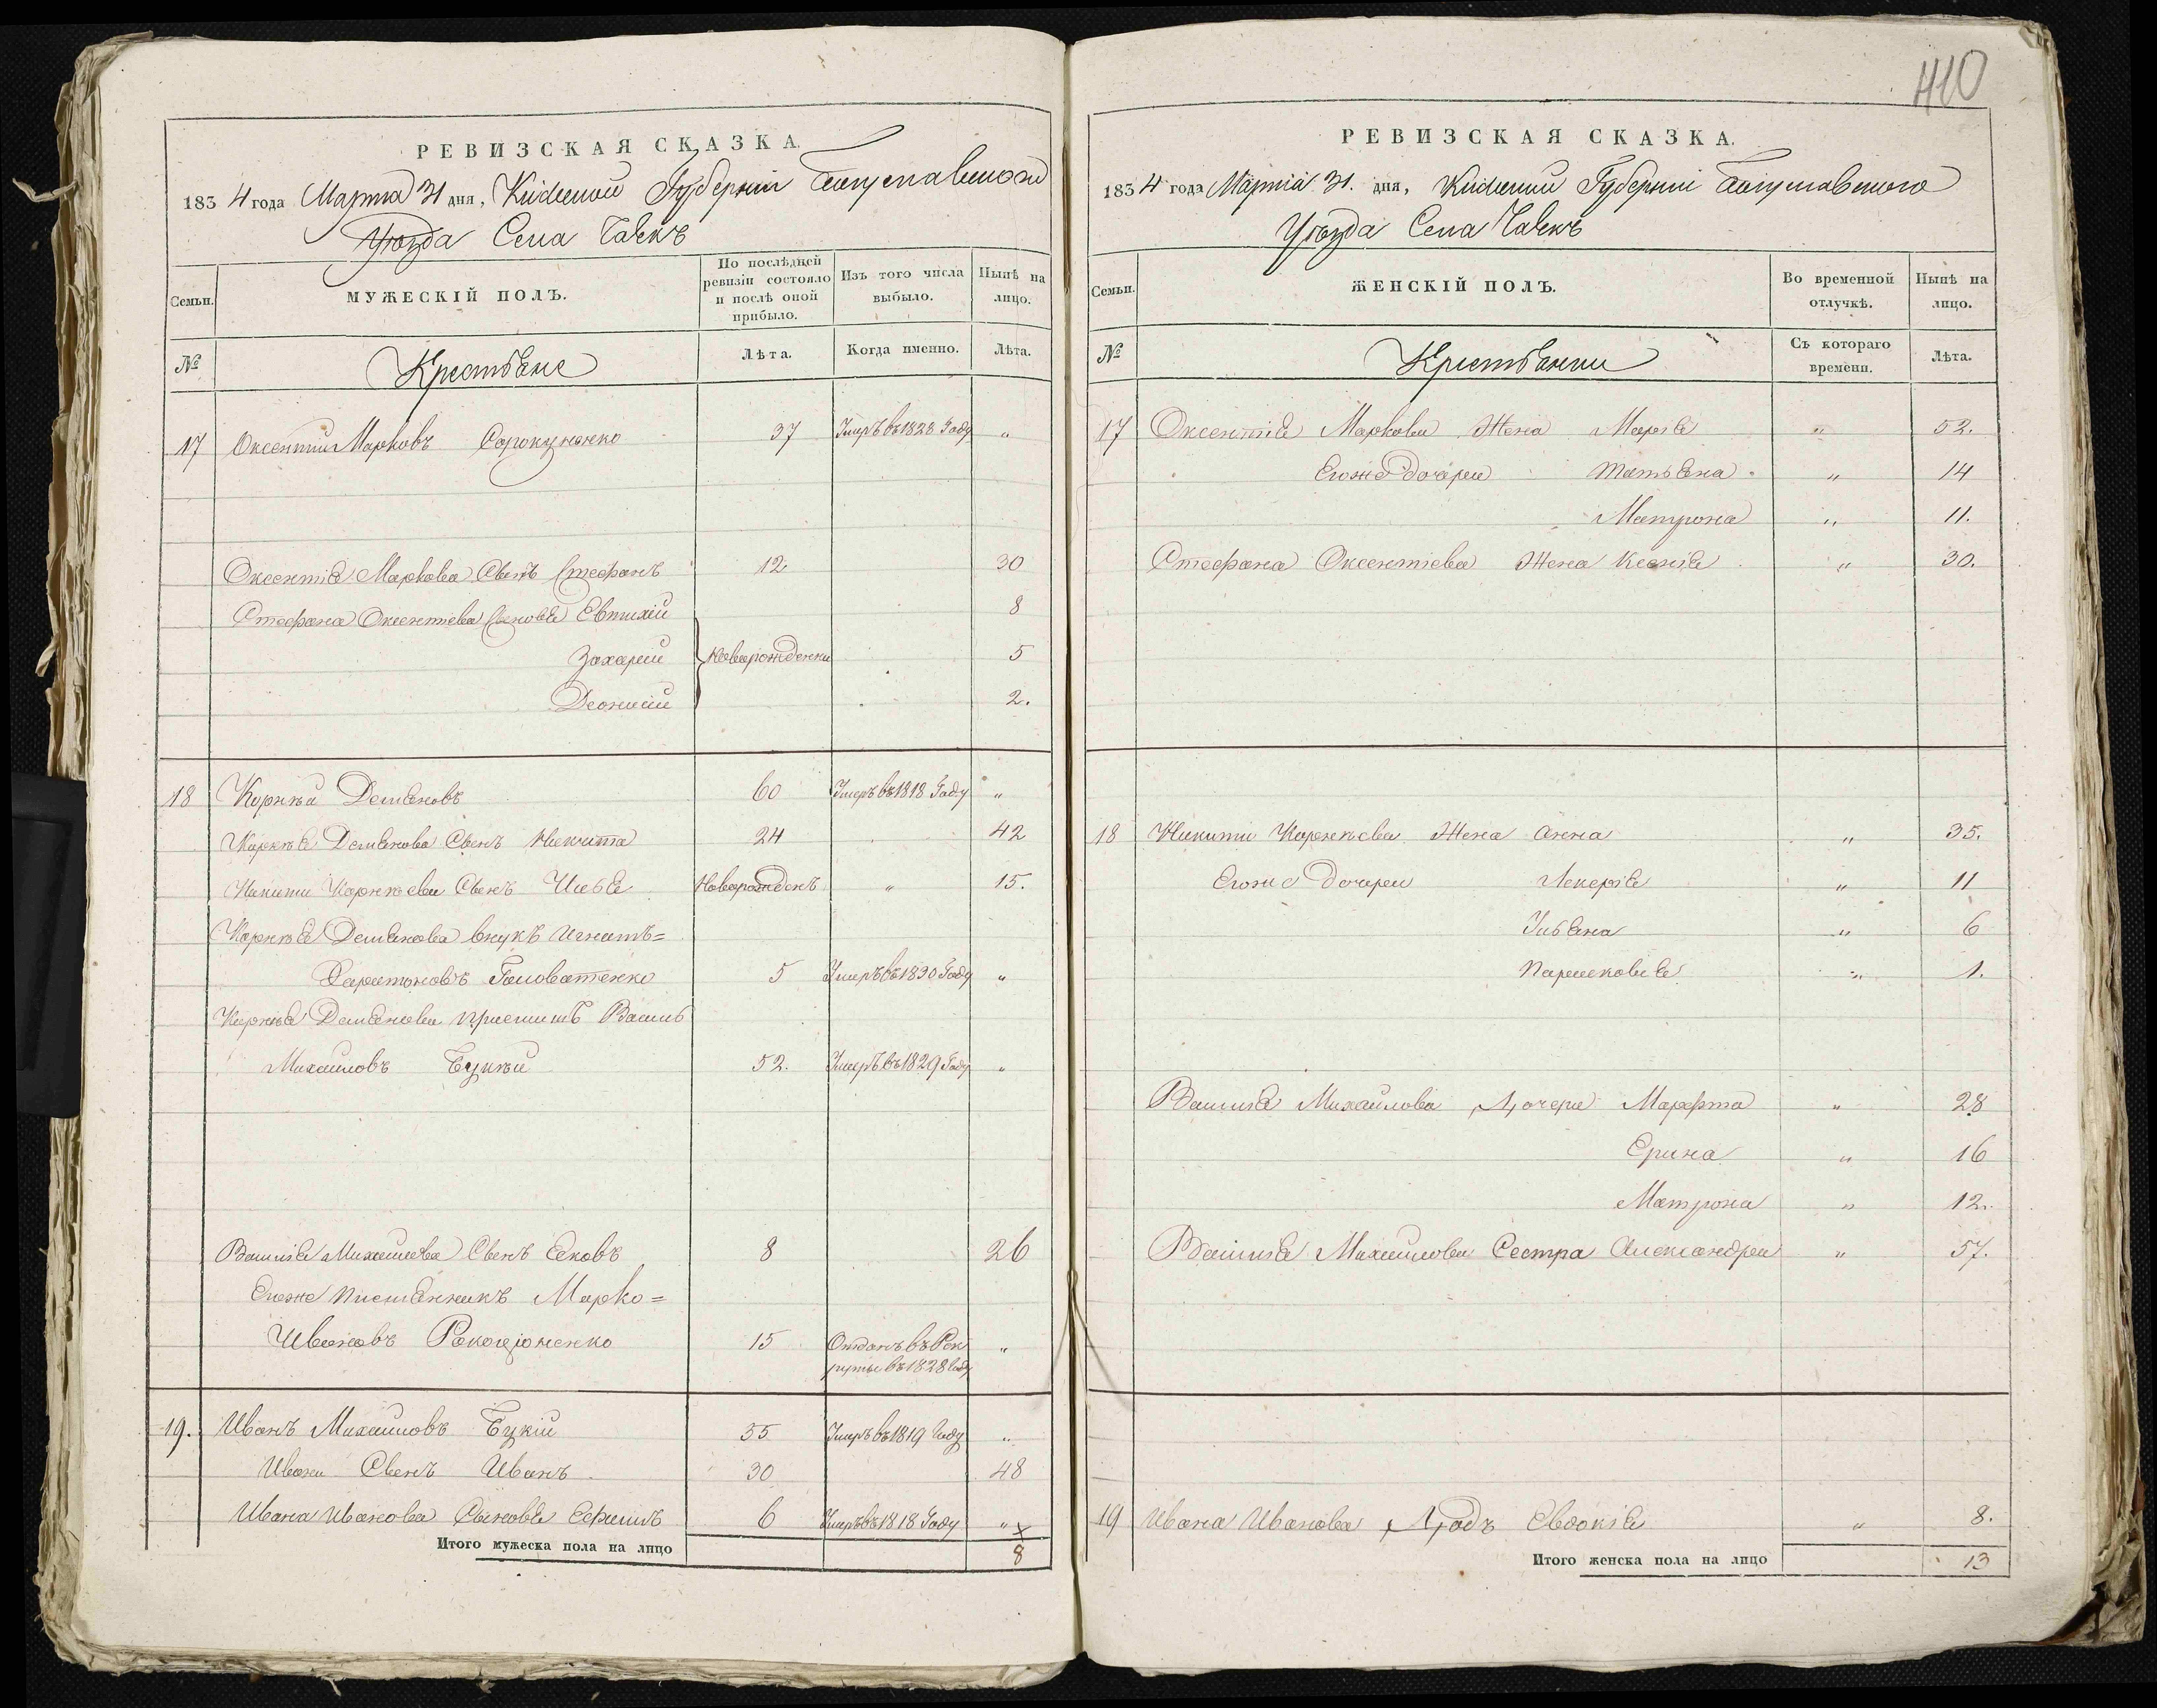 410
РЕВИЗСКАЯ СКАЗКА.
1834 года Марта 31 дня, Киевской Губерніи Богуславского
Уѣзда Села
Семьи.
МУЖЕСКІЙ ПОЛЪ.
По послѣдней ревизіи состояло и послѣ оной прибыло.
Изъ того числа выбыло.
Нынѣ на лицо.
№
Крестьяне
Лѣта.
Когда именно.
Лѣта.
17 Оксентий Марковъ Сорокуненко 37 Умеръ въ 1828 Году „
Оксентія Маркова Сынъ Стефанъ 12 30
Стефана Оксентіева Сыновья Евтихій 8
Захарий новорожденни 5
Деонисий 2.
18 Корнѣй Демяновъ 60 Умеръ въ 1818 Году „
Корнѣя Демянова Сынъ Никита 24 42
Никити Корнѣева Сынъ Илья Новорожденъ „ 15.
Корнѣя Демянова внукъ Игнатъ=
Харитоновъ Головатенко 5 Умеръ въ 1830 Году „
Корнѣя Демянова приемишъ Василь
Михайловъ Буцкий 52. Умеръ въ 1829 Году „
Василія Михайлова Сынъ Яковъ 8 26
Егоже племянникъ Марко=
Ивановъ 15 Отданъ въ Рек
руты въ 1828 Году „
19. Иванъ Михайловъ Буцкій 55 Умеръ въ 1819 Году „
Ивана Сынъ Иванъ 30 48
Ивана Иванова Сыновья Ефимъ 6 Умеръ въ 1818 Году „
Итого мужеска пола на лицо 8
РЕВИЗСКАЯ СКАЗКА.
1834 года Марта 31. дня, Киевской Губерніи Богуславского
Уѣзда Села
Семьи.
ЖЕНСКІЙ ПОЛЪ.
Во временной отлучкѣ.
Нынѣ на лицо.
№
Крестьянки
Съ котораго времени.
Лѣта.
17 Оксентія Маркова Жена Марія „ 52.
Егоже дочери Татьяна „ 14
Матрона „ 11.
Стефана Оксентіева Жена Ксенія „ 30.
18 Никити Корнѣева Жена Анна „ 35.
Егоже Дочери Лекерія „ 11
Ульяна „ 6
Парасковія „ 1.
Василія Михайлова Дочери Марфта „ 28
Ерина „ 16
Матрона „ 12.
Василія Михайлова Сестра Александра „ 57.
19 Ивана Иванова Дочь Евдокія „ 8.
Итого женска пола на лицо 13